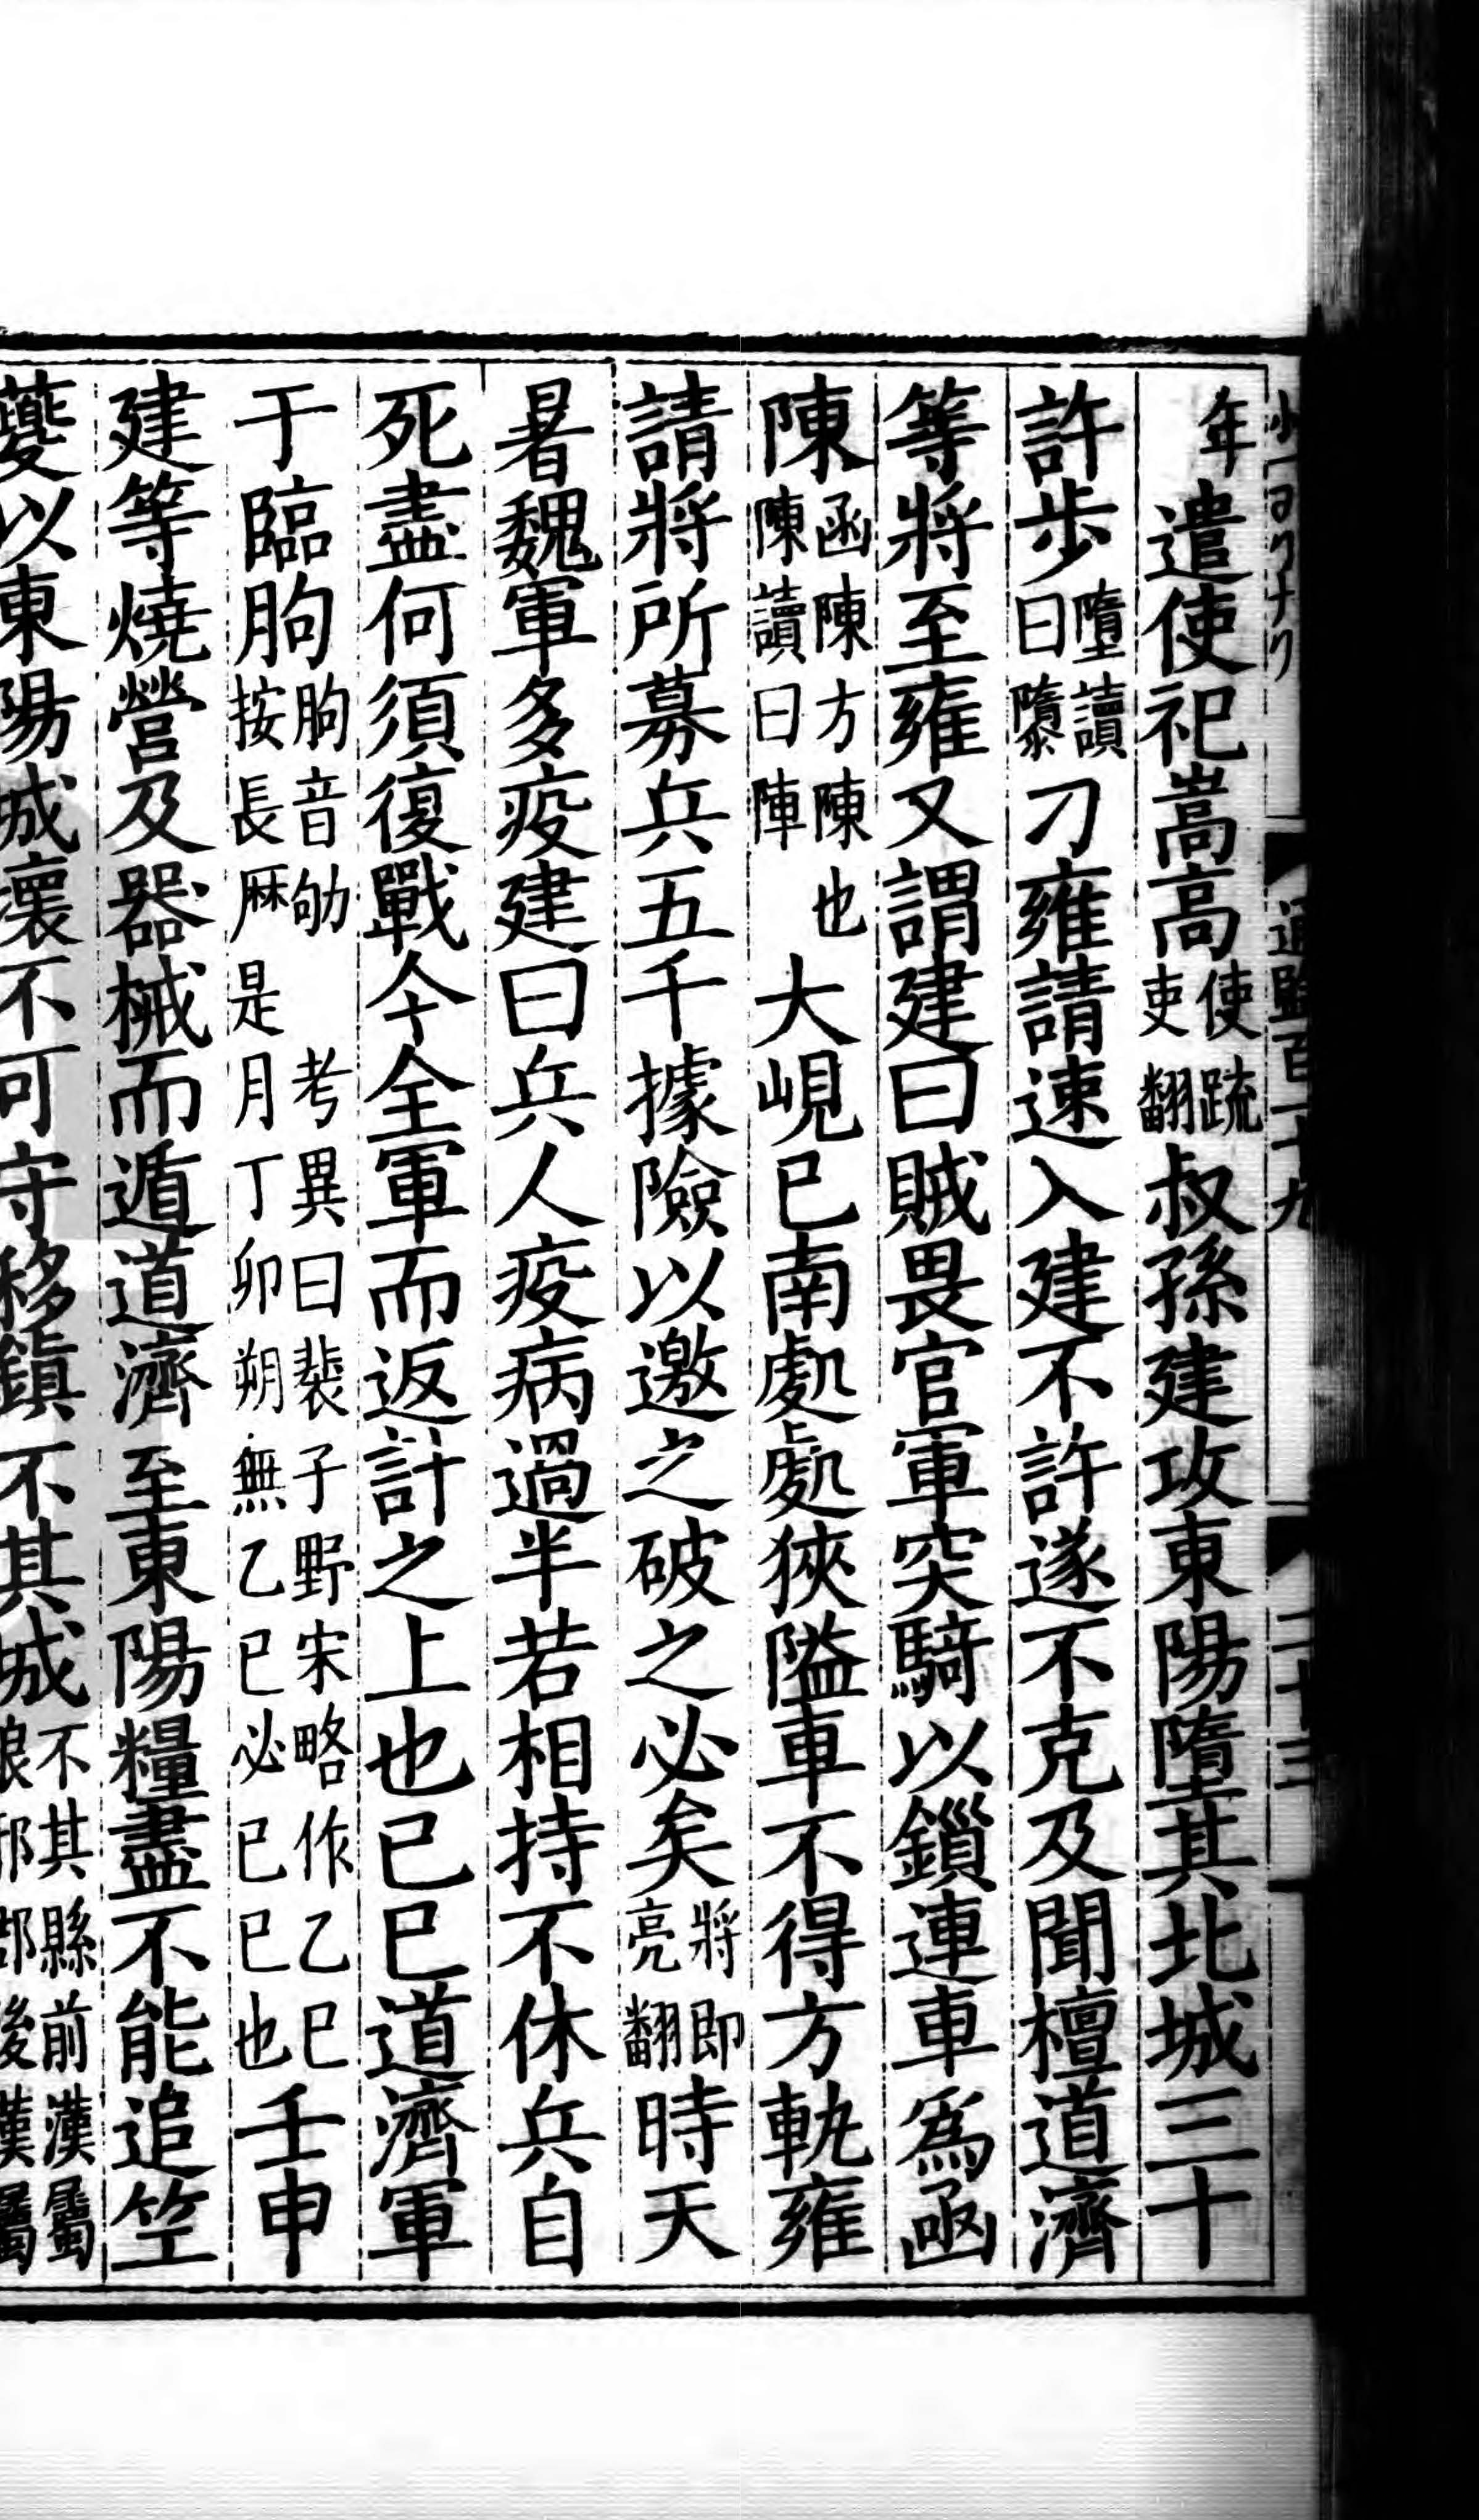 通鑑百十九
二十三
年遣使祀嵩高使疏吏翻叔孫建攻東陽墮其北城三十
許步墮讀曰隳刁雍請速入建不許遂不克及聞檀道濟
等將至雍又謂建曰賊畏官軍突騎以鎻連車爲函
陳函陳方陳也陳讀曰陣大峴已南處處狹隘車不得方軌雍
請將所募兵五千據險以邀之破之必矣將即亮翻時天
暑魏軍多疫建曰兵人疫病過半若相持不休兵自
死盡何須復戰今全軍而返計之上也己巳道濟軍
于臨朐朐音劬考異曰裴子野宋略作乙巳按長厤是月丁卯朔無乙巳必己巳也壬申
建等燒營及器械而遁道濟至東陽糧盡不能追竺
夔以東陽城壞不可守移鎮不其城不其縣前漢屬琅邪郡後漢屬